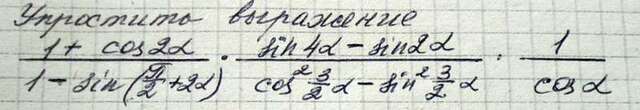 Упростить выражение
\frac{1 + cos2α}{1 - sin(\frac{π}{2} + 2α)} · \frac{sin4α - sin2α}{cos²\frac{3}{2}α - sin²\frac{3}{2}α} · \frac{1}{cosα}